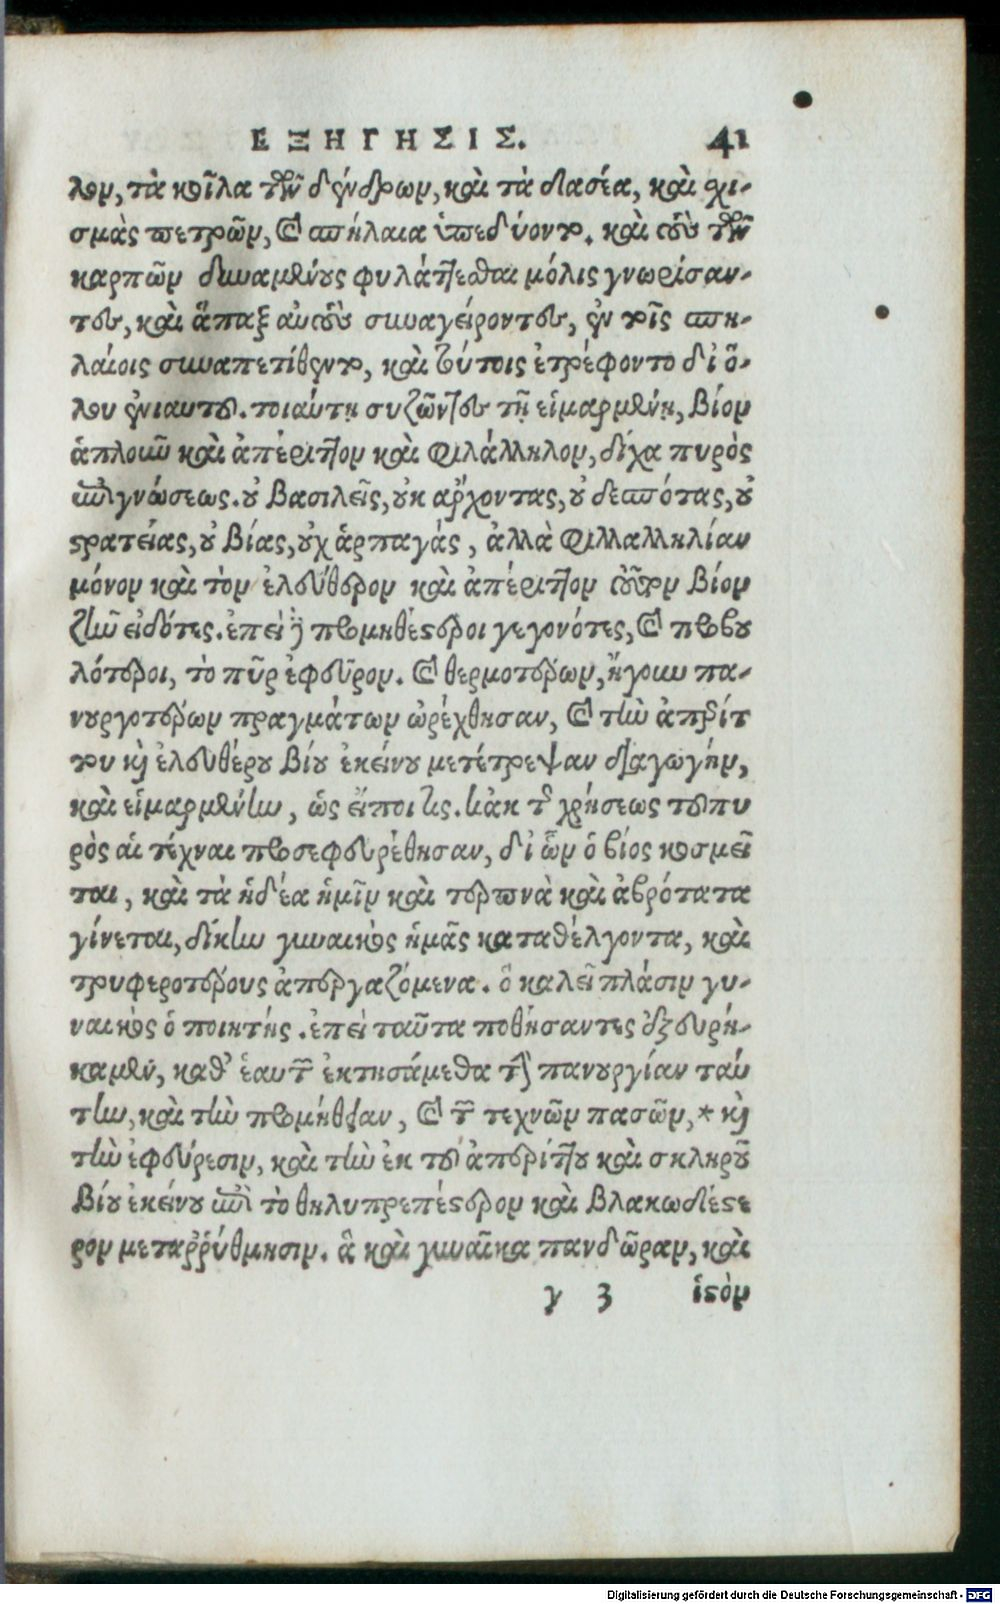 ΕΞΗΓΗΣΙΣ. 41
λον, τὰ κοῖλα τῶν δένδρων, καὶ τὰ δασέα, καὶ χι-
σμὰς πετρῶν, καὶ σπήλαια ὑπεδύοντο. καὶ τοὺς τῶν
καρπῶν δυναμένους φυλάττεσθαι μόλις γνωρίσαν-
τες, καὶ ἅπαξ αὐτοὺς συναγείροντες, ἐν τοῖς σπη-
λαίοις συναπετίθεντο, καὶ τούτοις ἐτρέφοντο δι' ὅ-
λου ἐνιαυτοῦ. τοιαύτῃ συζῶντες τῇ εἱμαρμένῃ, βίον
ἁπλοῦν καὶ ἀπέριττον καὶ φιλάλληλον, δίχα πυρὸς
ἐπιγνώσεως. οὐ βασιλεῖς, οὐκ ἄρχοντας, οὐ δεσπότας, οὐ
στρατείας, οὐ βίας, οὐχ ἁρπαγάς, ἀλλὰ φιλλαλληλίαν
μόνον καὶ τὸν ἐλεύθερον καὶ ἀπέριττον τοῦτον βίον
ζῆν εἰδότες. ἐπεὶ δὲ προμηθέστεροι γεγονότες, καὶ προβου
λότεροι, τὸ πῦρ ἐφεῦρον. καὶ θερμοτέρων, ἤγουν πα-
νουργοτέρων πραγμάτων ὠρέχθησαν, καὶ τὴν ἀπερίτ
του καὶ ἐλευθέρου βίου ἐκείνου μετέτρεψαν διαγωγήν,
καὶ εἱμαρμένην, ὡς εἴποι τις. κἀκ τῆς χρήσεως τοῦ πυ
ρὸς αἱ τέχναι προσεφευρέθησαν, δι' ὧν ὁ βίος κοσμεῖ
ται, καὶ τὰ ἡδέα ἡμῖν καὶ τερπνὰ καὶ ἁβρότατα
γίνεται, δίκην γυναικὸς ἡμᾶς καταθέλγοντα, καὶ
τρυφεροτέρους ἀπεργαζόμενα. ὃ καλεῖ πλάσιν γυ-
ναικὸς ὁ ποιητής. ἐπεὶ ταῦτα ποθήσαντες ἐξευρή-
καμεν, καθ' ἑαυτῶν ἐκτησάμεθα τὴν πανουργίαν ταύ
την, καὶ τὴν προμήθειαν, καὶ τῶν τεχνῶν πασῶν, * καὶ
τὴν ἐφεύρεσιν, καὶ τὴν ἐκ τοῦ ἀπερίττου καὶ σκληροῦ
βίου ἐκείνου ἐπὶ τὸ θηλυπρεπέστερον καὶ βλακωδέστε
ρον μεταῤῥύθμησιν. ἃ καὶ γυναῖκα πανδῶραν, καὶ
γ 3 ἱστὸν
Digitalisierung gefördert durch die Deutsche Forschungsgemeinschaft - DFG